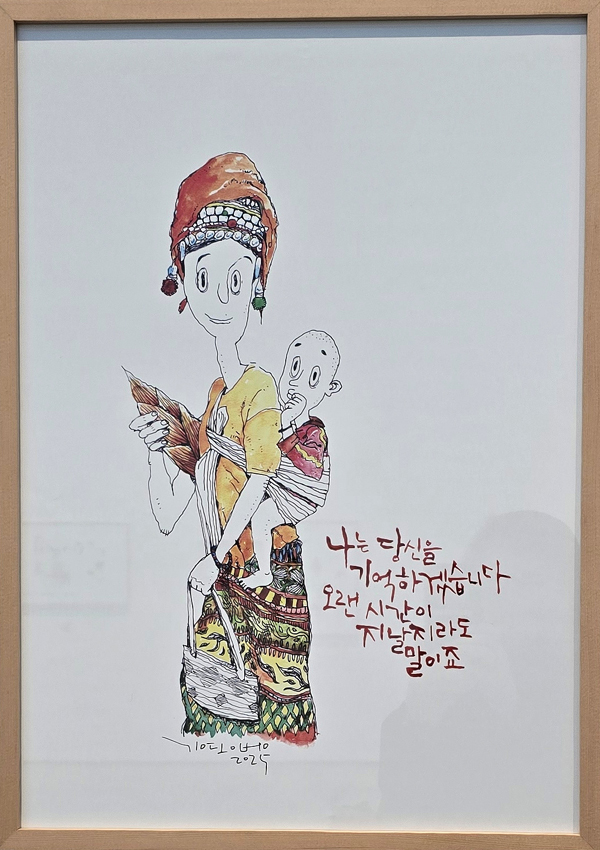 나는 당신을
기억하겠습니다
오랜 시간이
지날지라도
말이죠
2025